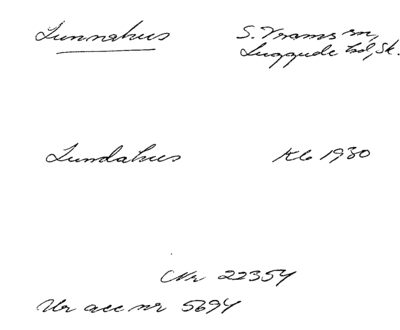 Lunnahus S. Vrams sn,
Luggude hd, Sk.
Lundahus Kb 1930
Nr 22354
Ur acc nr 5694